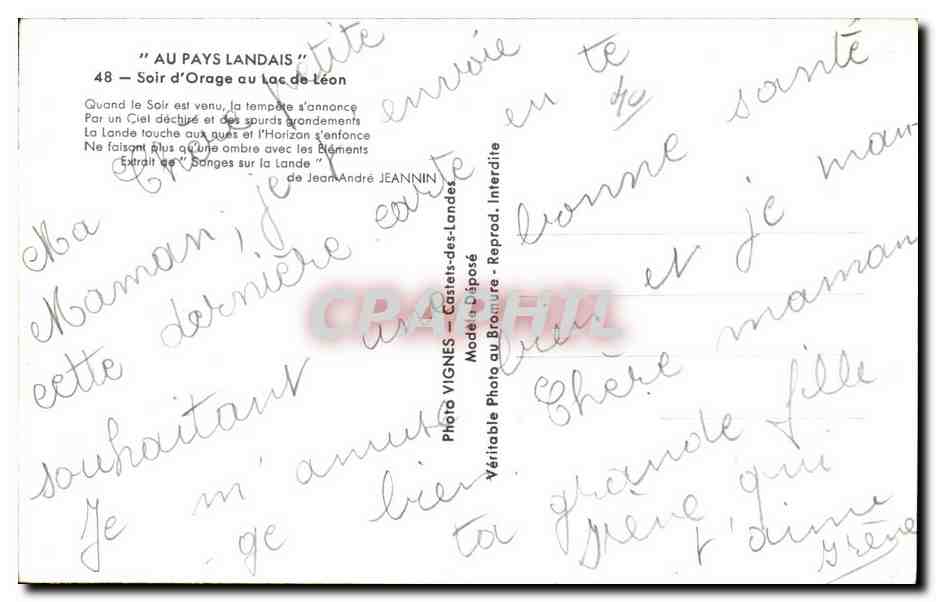 " AU PAYS LANDAIS "
48 — Soir d'Orage au Lac de Léon
Quand le Soir est venu, la tempête s'annonce
Par un Ciel déchiré et des sourds grondements
La Lande touche aux nues et l'Horizon s'enfonce
Ne faisant plus qu'une ombre avec les Éléments
Extrait de " Songes sur la Lande "
de Jean-André JEANNIN
Photo VIGNES — Castets-des-Landes
Modèle Déposé
Véritable Photo au Bromure - Reprod. Interdite
CPAPHIL
Ma Chère petite
Maman, je t'envoie
cette dernière carte en te
souhaitant une bonne santé
Je m'amuse bien et je man
ge bien. Chère maman
ta grande fille
Irène qui
t'aime
Irène